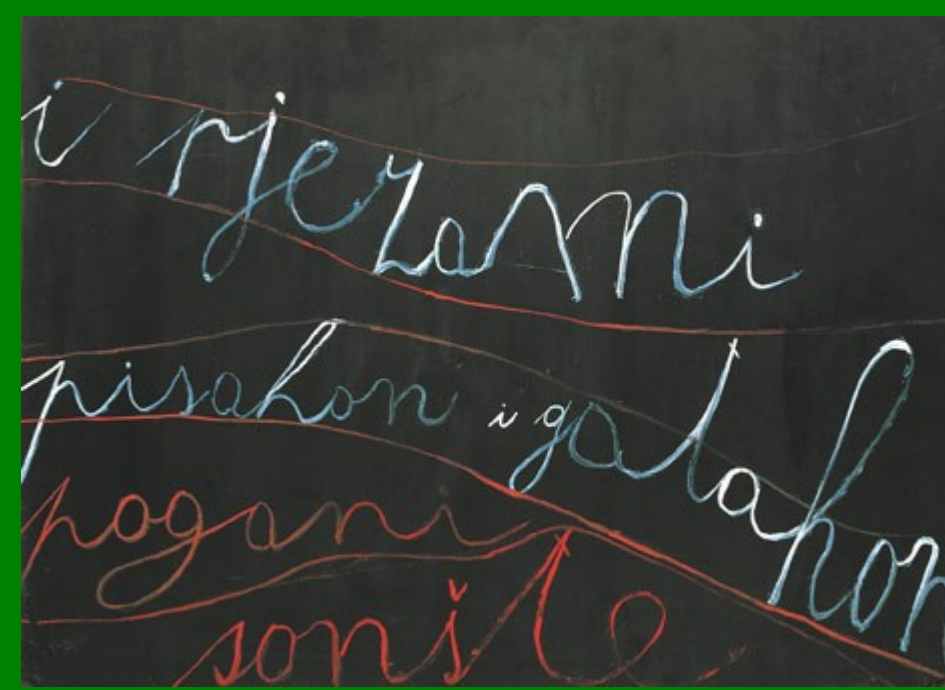 i rjezami
pisahon i gatahon
pogani
sonšte